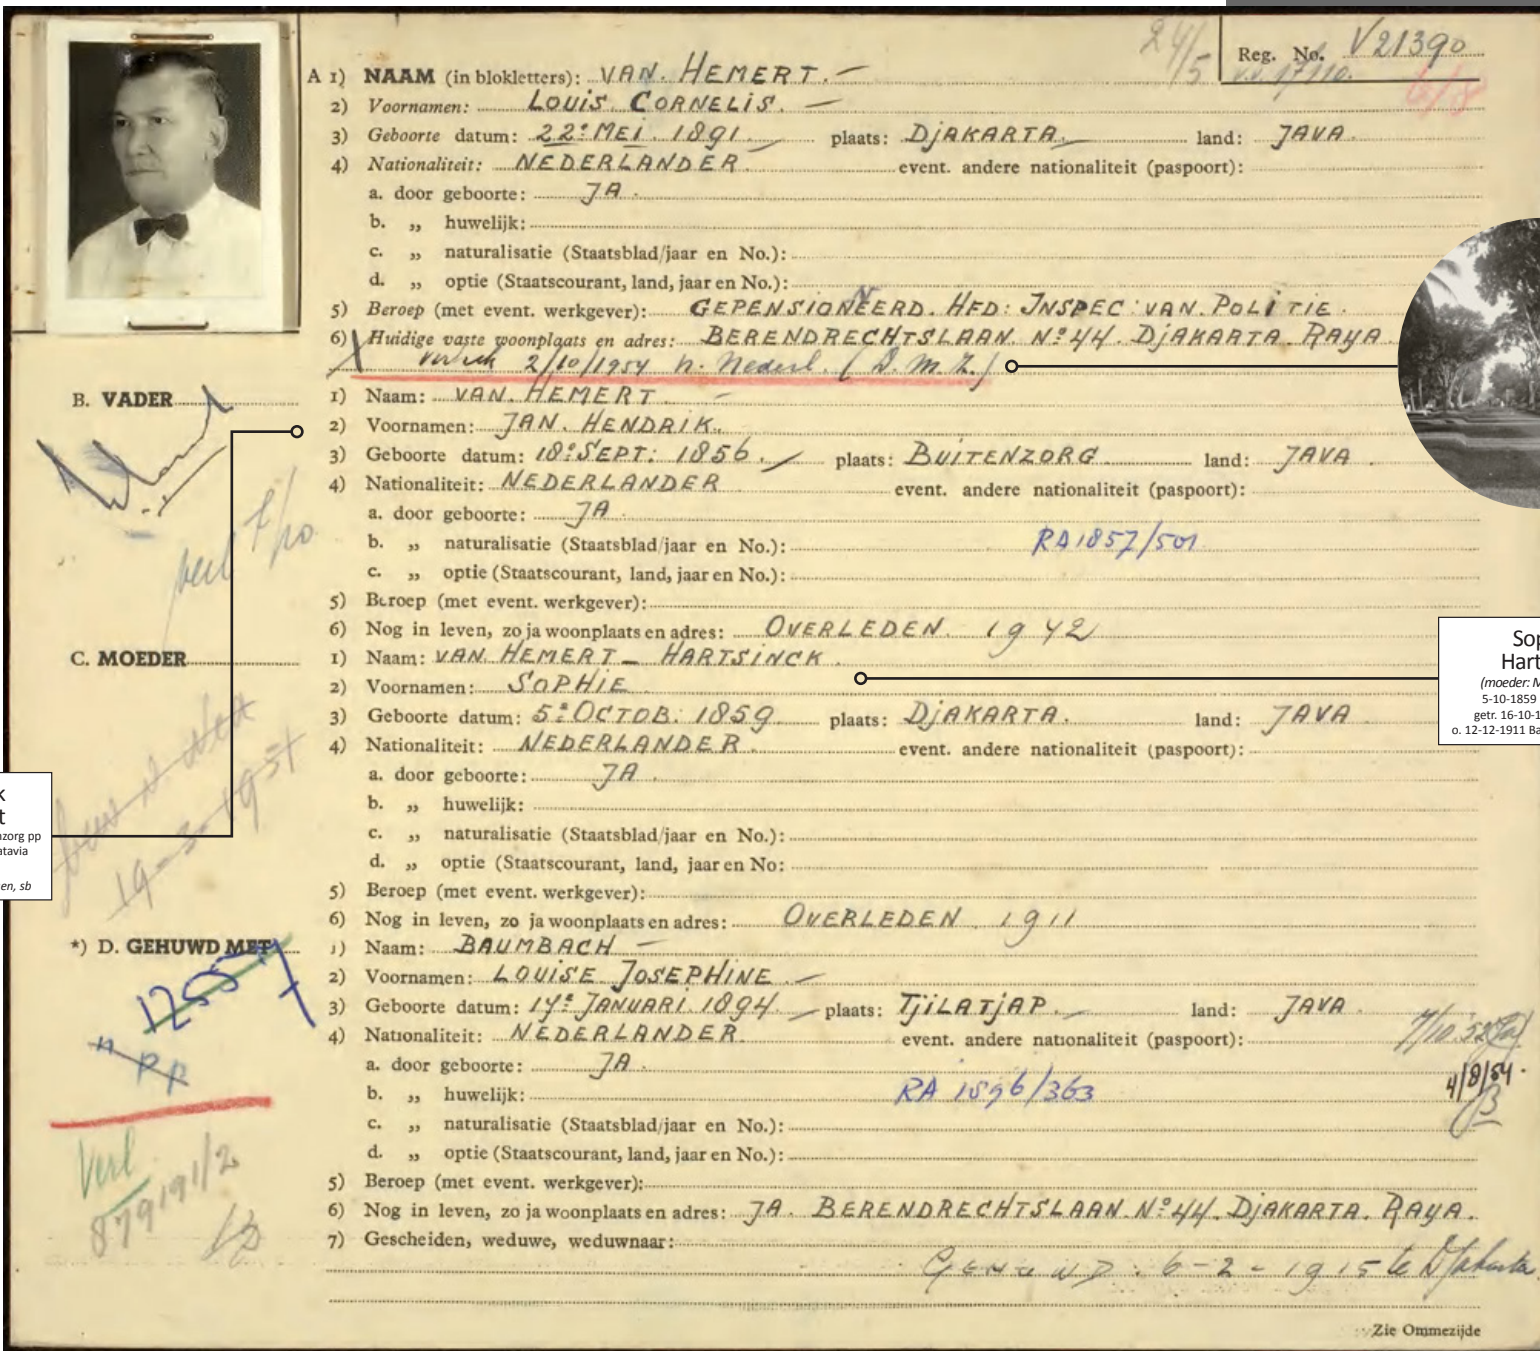 24/5
Reg. No. V21390
v.v. 17/10.
6/8
A 1) NAAM (in blokletters): VAN. HEMERT. —
2) Voornamen: LOUIS. CORNELIS. —
3) Geboorte datum: 22e MEI. 1891. plaats: DJAKARTA. land: JAVA.
4) Nationaliteit: NEDERLANDER. event. andere nationaliteit (paspoort):
a. door geboorte: JA.
b. „ huwelijk:
c. „ naturalisatie (Staatsblad/jaar en No.):
d. „ optie (Staatscourant, land, jaar en No.):
5) Beroep (met event. werkgever): GEPENSIONNEERD. HFD: INSPEC: VAN. POLITIE.
6) Huidige vaste woonplaats en adres: BERENDRECHTSLAAN. No 44. DJAKARTA. RAYA.
2/10/1954 n. Nederl.
B. VADER
1) Naam: VAN. HEMERT —
2) Voornamen: JAN. HENDRIK.
3) Geboorte datum: 18e SEPT: 1856. plaats: BUITENZORG land: JAVA.
4) Nationaliteit: NEDERLANDER event. andere nationaliteit (paspoort):
a. door geboorte: JA.
b. „ naturalisatie (Staatsblad/jaar en No.): RA 1857/501
c. „ optie (Staatscourant, land, jaar en No.):
5) Beroep (met event. werkgever):
6) Nog in leven, zo ja woonplaats en adres: OVERLEDEN. 1942
C. MOEDER
1) Naam: VAN. HEMERT – HARTSINCK.
2) Voornamen: SOPHIE.
3) Geboorte datum: 5e OCTOB. 1859. plaats: DJAKARTA. land: JAVA
4) Nationaliteit: NEDERLANDER. event. andere nationaliteit (paspoort):
a. door geboorte: JA.
b. „ huwelijk:
c. „ naturalisatie (Staatsblad/jaar en No.):
d. „ optie (Staatscourant, land, jaar en No:
5) Beroep (met event. werkgever):
6) Nog in leven, zo ja woonplaats en adres: OVERLEDEN. 1911
Sop
Hart
(moeder: M
5-10-1859
getr. 16-10-1
o. 12-12-1911 Ba
k
t
nzorg pp
atavia
en, sb
*) D. GEHUWD MET
1) Naam: BAUMBACH —
2) Voornamen: LOUISE JOSEPHINE. —
3) Geboorte datum: 14e JANUARI. 1894. plaats: TJILATJAP. land: JAVA.
4) Nationaliteit: NEDERLANDER. event. andere nationaliteit (paspoort):
7/10.52
a. door geboorte: JA.
b. „ huwelijk: RA 1896/363
4/8/54.
c. „ naturalisatie (Staatsblad/jaar en No.):
d. „ optie (Staatscourant, land, jaar en No.):
5) Beroep (met event. werkgever):
6) Nog in leven, zo ja woonplaats en adres: JA. BERENDRECHTSLAAN. No 44. DJAKARTA. RAYA.
7) Gescheiden, weduwe, weduwnaar:
GEHUWD. 6-2-1915 te Djakarta
Verl
879191/2
Zie Ommezijde